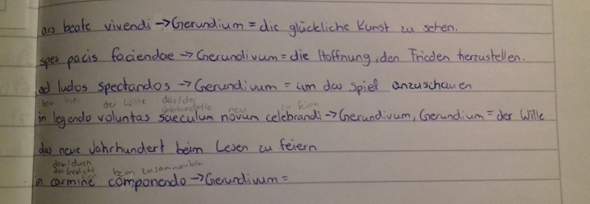 ars beate vivendi → Gerundium = die glückliche Kunst zu sehen.
spes pacis faciendae → Gerundivum = die Hoffnung, den Frieden herzustellen.
ad ludos spectandos → Gerundivum = um das Spiel anzuschauen
der Wille das/der neu zu feiern
in legendo voluntas saeculum novum celebrandi → Gerundivum, Gerundium = der Wille
das neue Jahrhundert beim Lesen zu feiern
beim zusammen
in carmine componendo → Gerundivum =